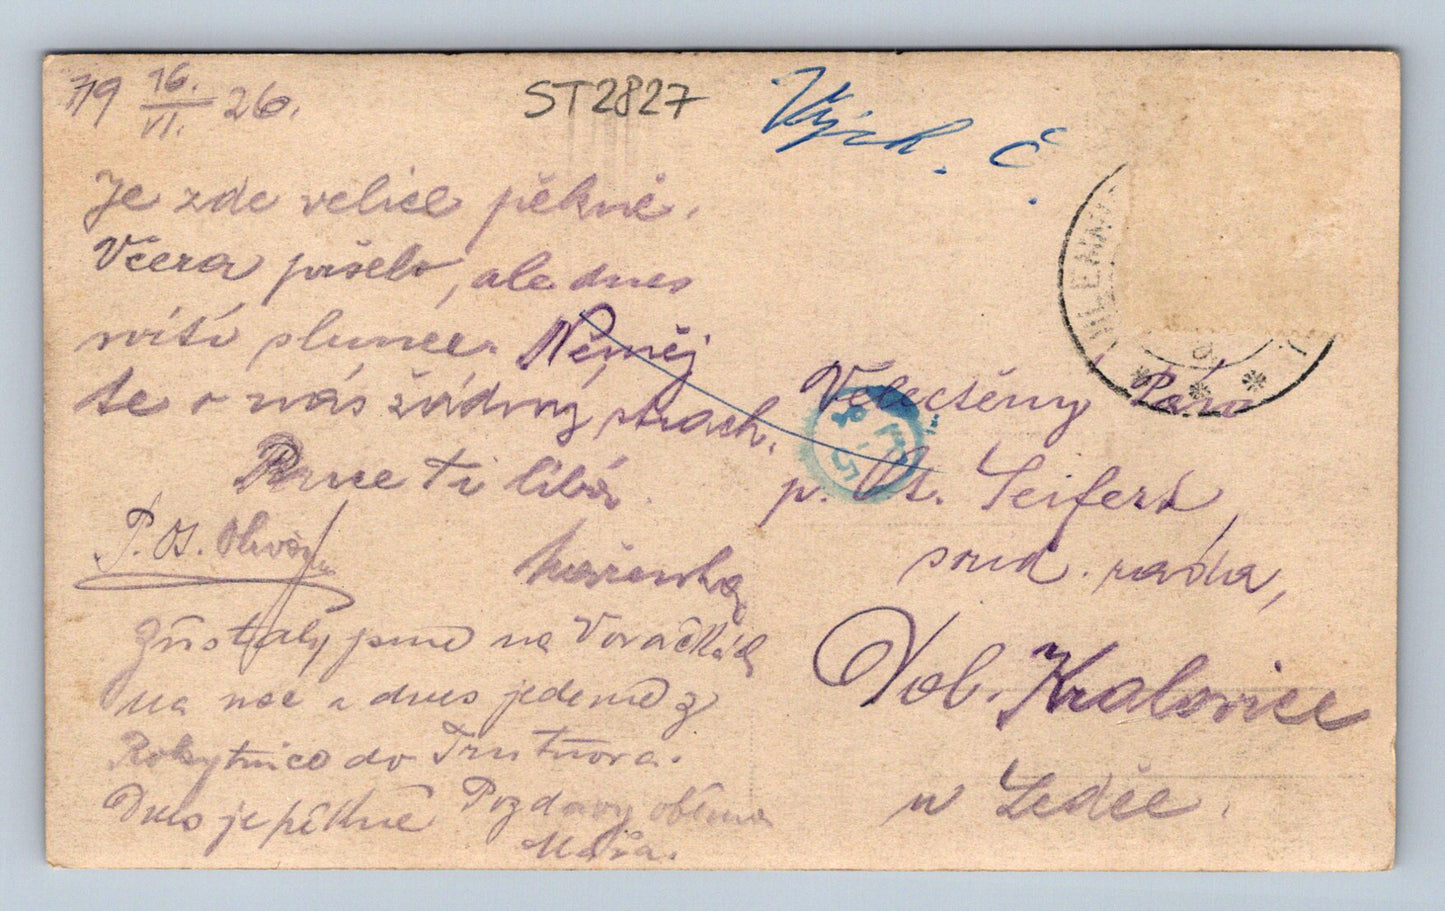 19 16./VI. 26.
ST2827
Vých. Č.
Je zde velice pěkně.
Včera pršelo, ale dnes
svítí slunce. Neměj
se o nás žádný strach.
Ruce Ti líbá
Mařenka
P. Os.
Zůstaly jsme na Voračkách
na noc a dnes jedeme z
Rokytnice do Trutnova.
Dnes je pěkně Pozdravy oběma
Máňa.
Velectěný Pán
p. Seifert,
soud. rada,
Dol. Kralovice
u Ledče.